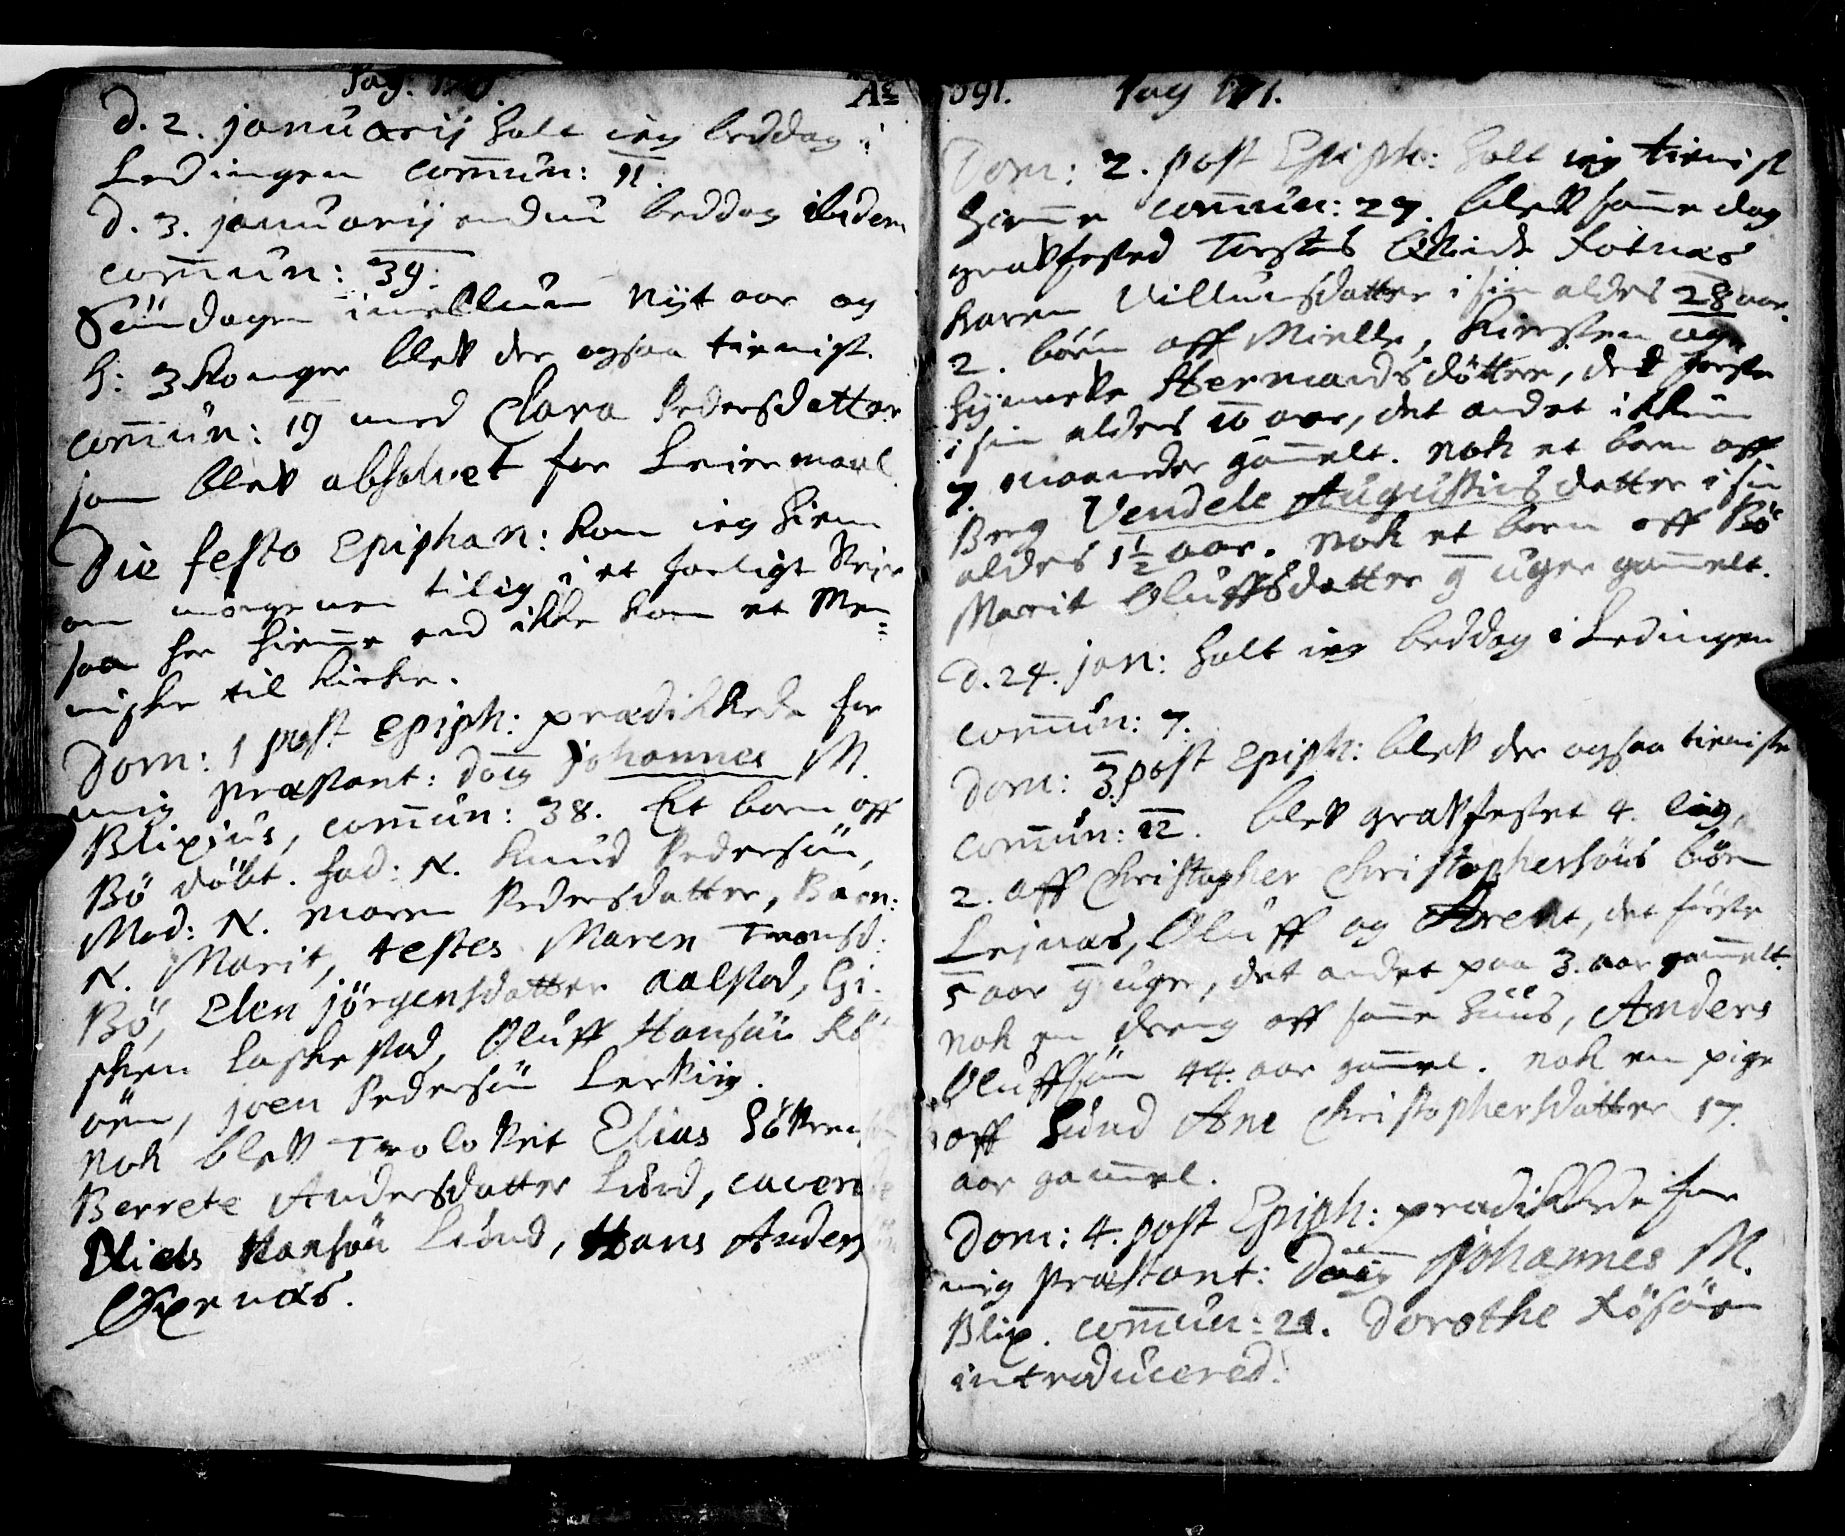 Pag: 170
Aº
D. 2. januarij holt ieg beddag i
Ledingen com̄un: 11.
D. 3. januarij endnu beddag ibidem
com̄un: 39.
Søndagen imellum Nyt aar og
H: 3 Konger blev der ogsaa tienist.
com̄un: 19 med Clara Pedersdatter
som blev absolvet for Leiermaal
Die festo Epiphan: kom ieg hiem
om morgenen tilig i et farligt Veir
saa her hiem̄e end ikke kom et Men=
niske til kirke.
Dom: 1 post Epiph: prædikkede for
mig præstant: Doīg Johannes M.
Blixius, com̄un: 38. Et barn aff
Bö döbt. fad: N. Knud Pedersøn,
Mod: N. Maren Pedersdatter, Barn:
N. Marit, testes Maren Tronsd:
Bö, Elen jörgensdatter aalstad, Ki-
sten Laskestad, Oluff Hansøn Rö
øen, joen Pedersøn Lerviig.
Nok blev Trolovet Elias Søvren
Berrete Andersdatter Lund, caver
Niels Hansøn Lund, Hans Anders
Oxenæs.
691. Pag 171.
Dom: 2. post Epiph: holt ieg tienist
hiem̄e com̄un: 27. blev sam̄e dag
gravfested Torstens Qvinde Fotnæs
Karen Villumsdatter i sin alder 28 aar.
2. börn aff Mielle, Kirsten og
Hynneke Hermandsdötter, det förste
i sin alder 10 aar, det andet ikkun
7. maaneder gam̄elt. Nok et barn aff
Berg Vendele Augustinsdatter i sin
alder 1½ aar. Nok et barn aff Bö
Marit Oluffsdatter 9 uger gam̄elt.
D. 24. jan: holt ieg beddag i Ledingen
com̄un: 7.
Dom: 3. post Epiph: blev der ogsaa tieniste
com̄un: 12. blev gravfestet 4. lig,
2. aff Christopher Christophersöns börn
Leinæs, Oluff og Arent, det förste
5 aar 9 uger, det andet paa 3. aar gam̄elt.
Nok en dreng aff sam̄e huus, Anders
Oluffsön 44. aar gam̄el. Nok en pige
aff Sund Ane Christophersdatter 17.
aar gam̄el.
Dom: 4. post Epiph: prædikkede for
mig præstant: Doīg Johannes M.
Blix. com̄un: 21. Dorothe Rösöen
introducered!